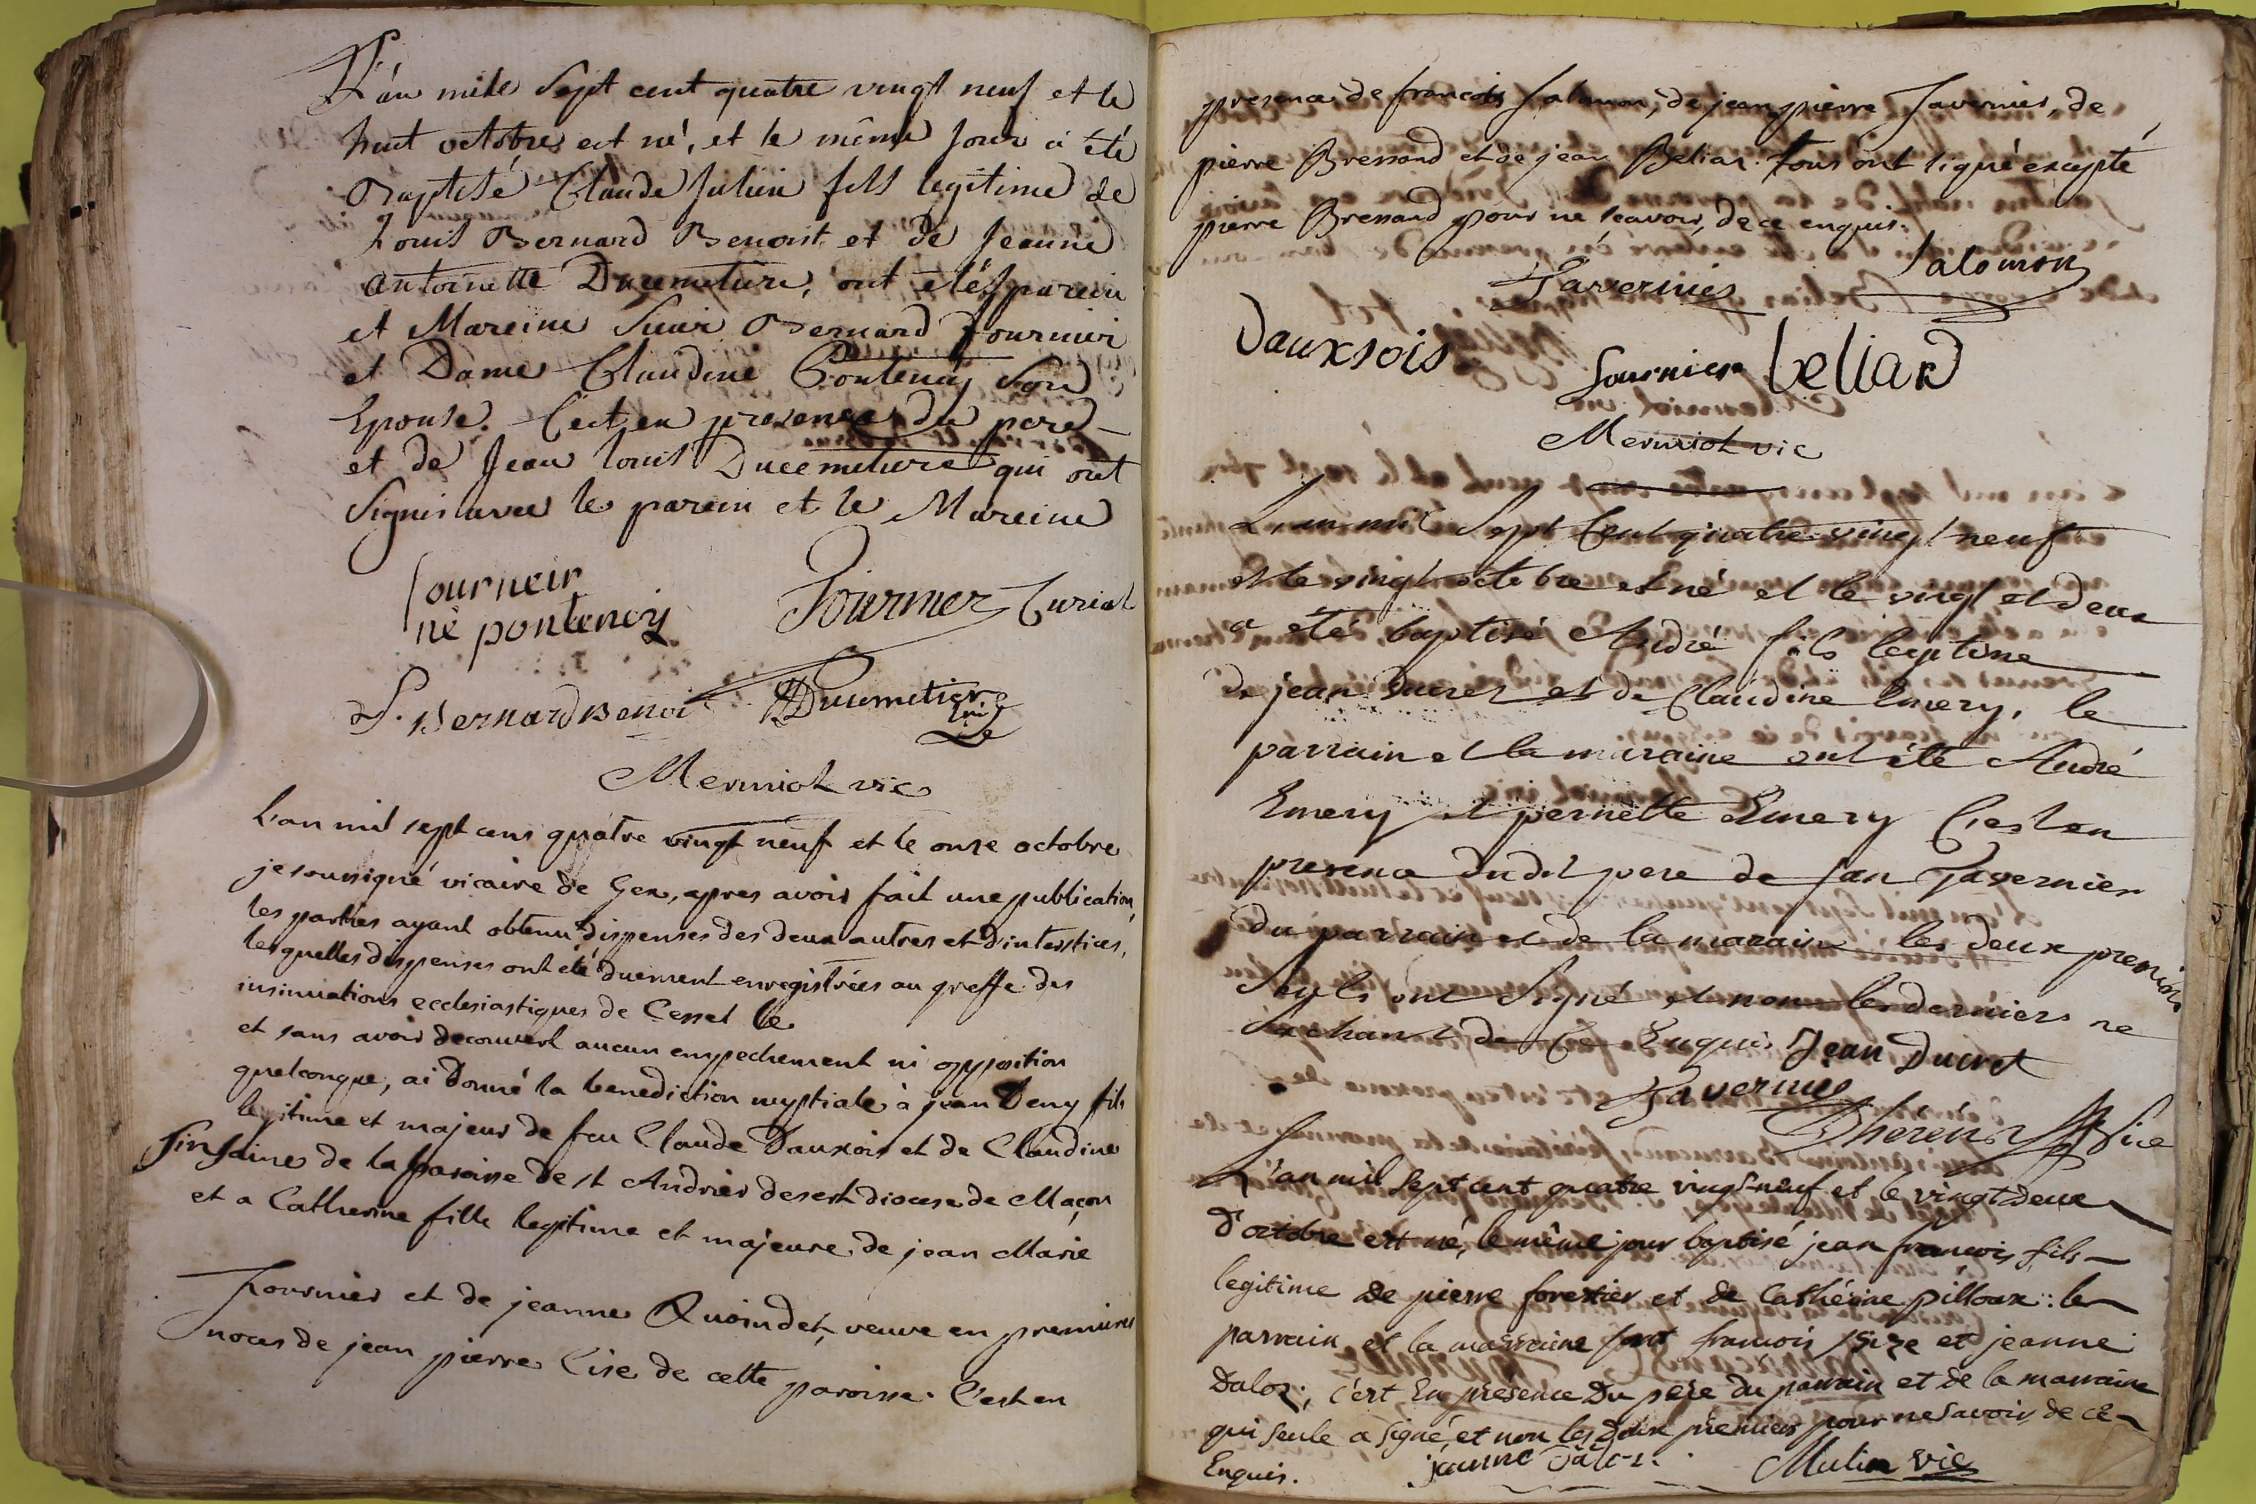 L'an mile Sept cent quatre vingt neuf et le
huit octobre est né, et le même jour a été
Baptisé Claude Julien fils legitime de
Louis Bernard Benoist et de Jeanne
antoinette Ducemetiere, ont étés parein
et Mareine Sieur Bernard fournier
et Dame Claudine Pontenay son
Epouse. C'est en presence du pere
et de Jean louis Ducemetiere qui ont
signés avec le parein et le Mareine
fourneir
né pontenoy
Fournier Curial
L. Bernard Benoi
Ducimetiere
Mermiot vic
L'an mil sept cens quatre vingt neuf et le onze octobre
je soussigné vicaire de Gex, apres avoir fait une publication,
les parties ayant obtenu dispenses des deux autres et d'interstices,
lesquelles dispenses ont eté duement enregistrées au greffe des
insinuations ecclesiastiques de Cessel le
et sans avoir decouvert aucun empechement ni opposition
quelconque, ai donné la benediction nuptiale à jean Deny fils
legitime et majeur de feu Claude Dauxois et de Claudine
de la paroisse de st Andrier desert diocese de Maçon
et a Catherine fille legitime et majeure de jean Marie
Fournier et de jeanne Quoindet, veuve en premieres
noces de jean pierre Cise de cette paroisse. C'est en
presence de francois Salomon, de jean pierre Tavernier, de
pierre Bressand et de jean Beliar. tous ont signé excepté
pierre Bressand pour ne sçavoir, de ce enquis.
Tavernier Salomon
Dauxsois
fournier beliard
Mermiot vic
L'an mil Sept Cent quatre vingt neuf
et le vingt octobre est né et le vingt et deux
a été baptisé André fils legitime
de jean Ducret et de Claudine Emery, le
parrain et la maraine ont été André
Emery et pernette Emery C'est en
presence dudit pere de jan Tavernier
du parrain et de la maraine les deux premiers
Seuls ont Signé et non les derniers ne
Sachant de Ce Enquis Jean Ducret
Tavernier
L'an mil sept cent quatre vingt-neuf et le vingt deux
d'octobre est né, le même jour baptisé jean françois fils
legitime de pierre forestier et de Cathérine pilloux : le
parrain et la marraine sont francois Size et jeanne
Daloz ; c'est En présence Du pere du parrain et de la marraine
qui seule a signé, et non les Deux premiers pour ne savoir de ce
Enquis.
jeanne Daloz
Mulin vic